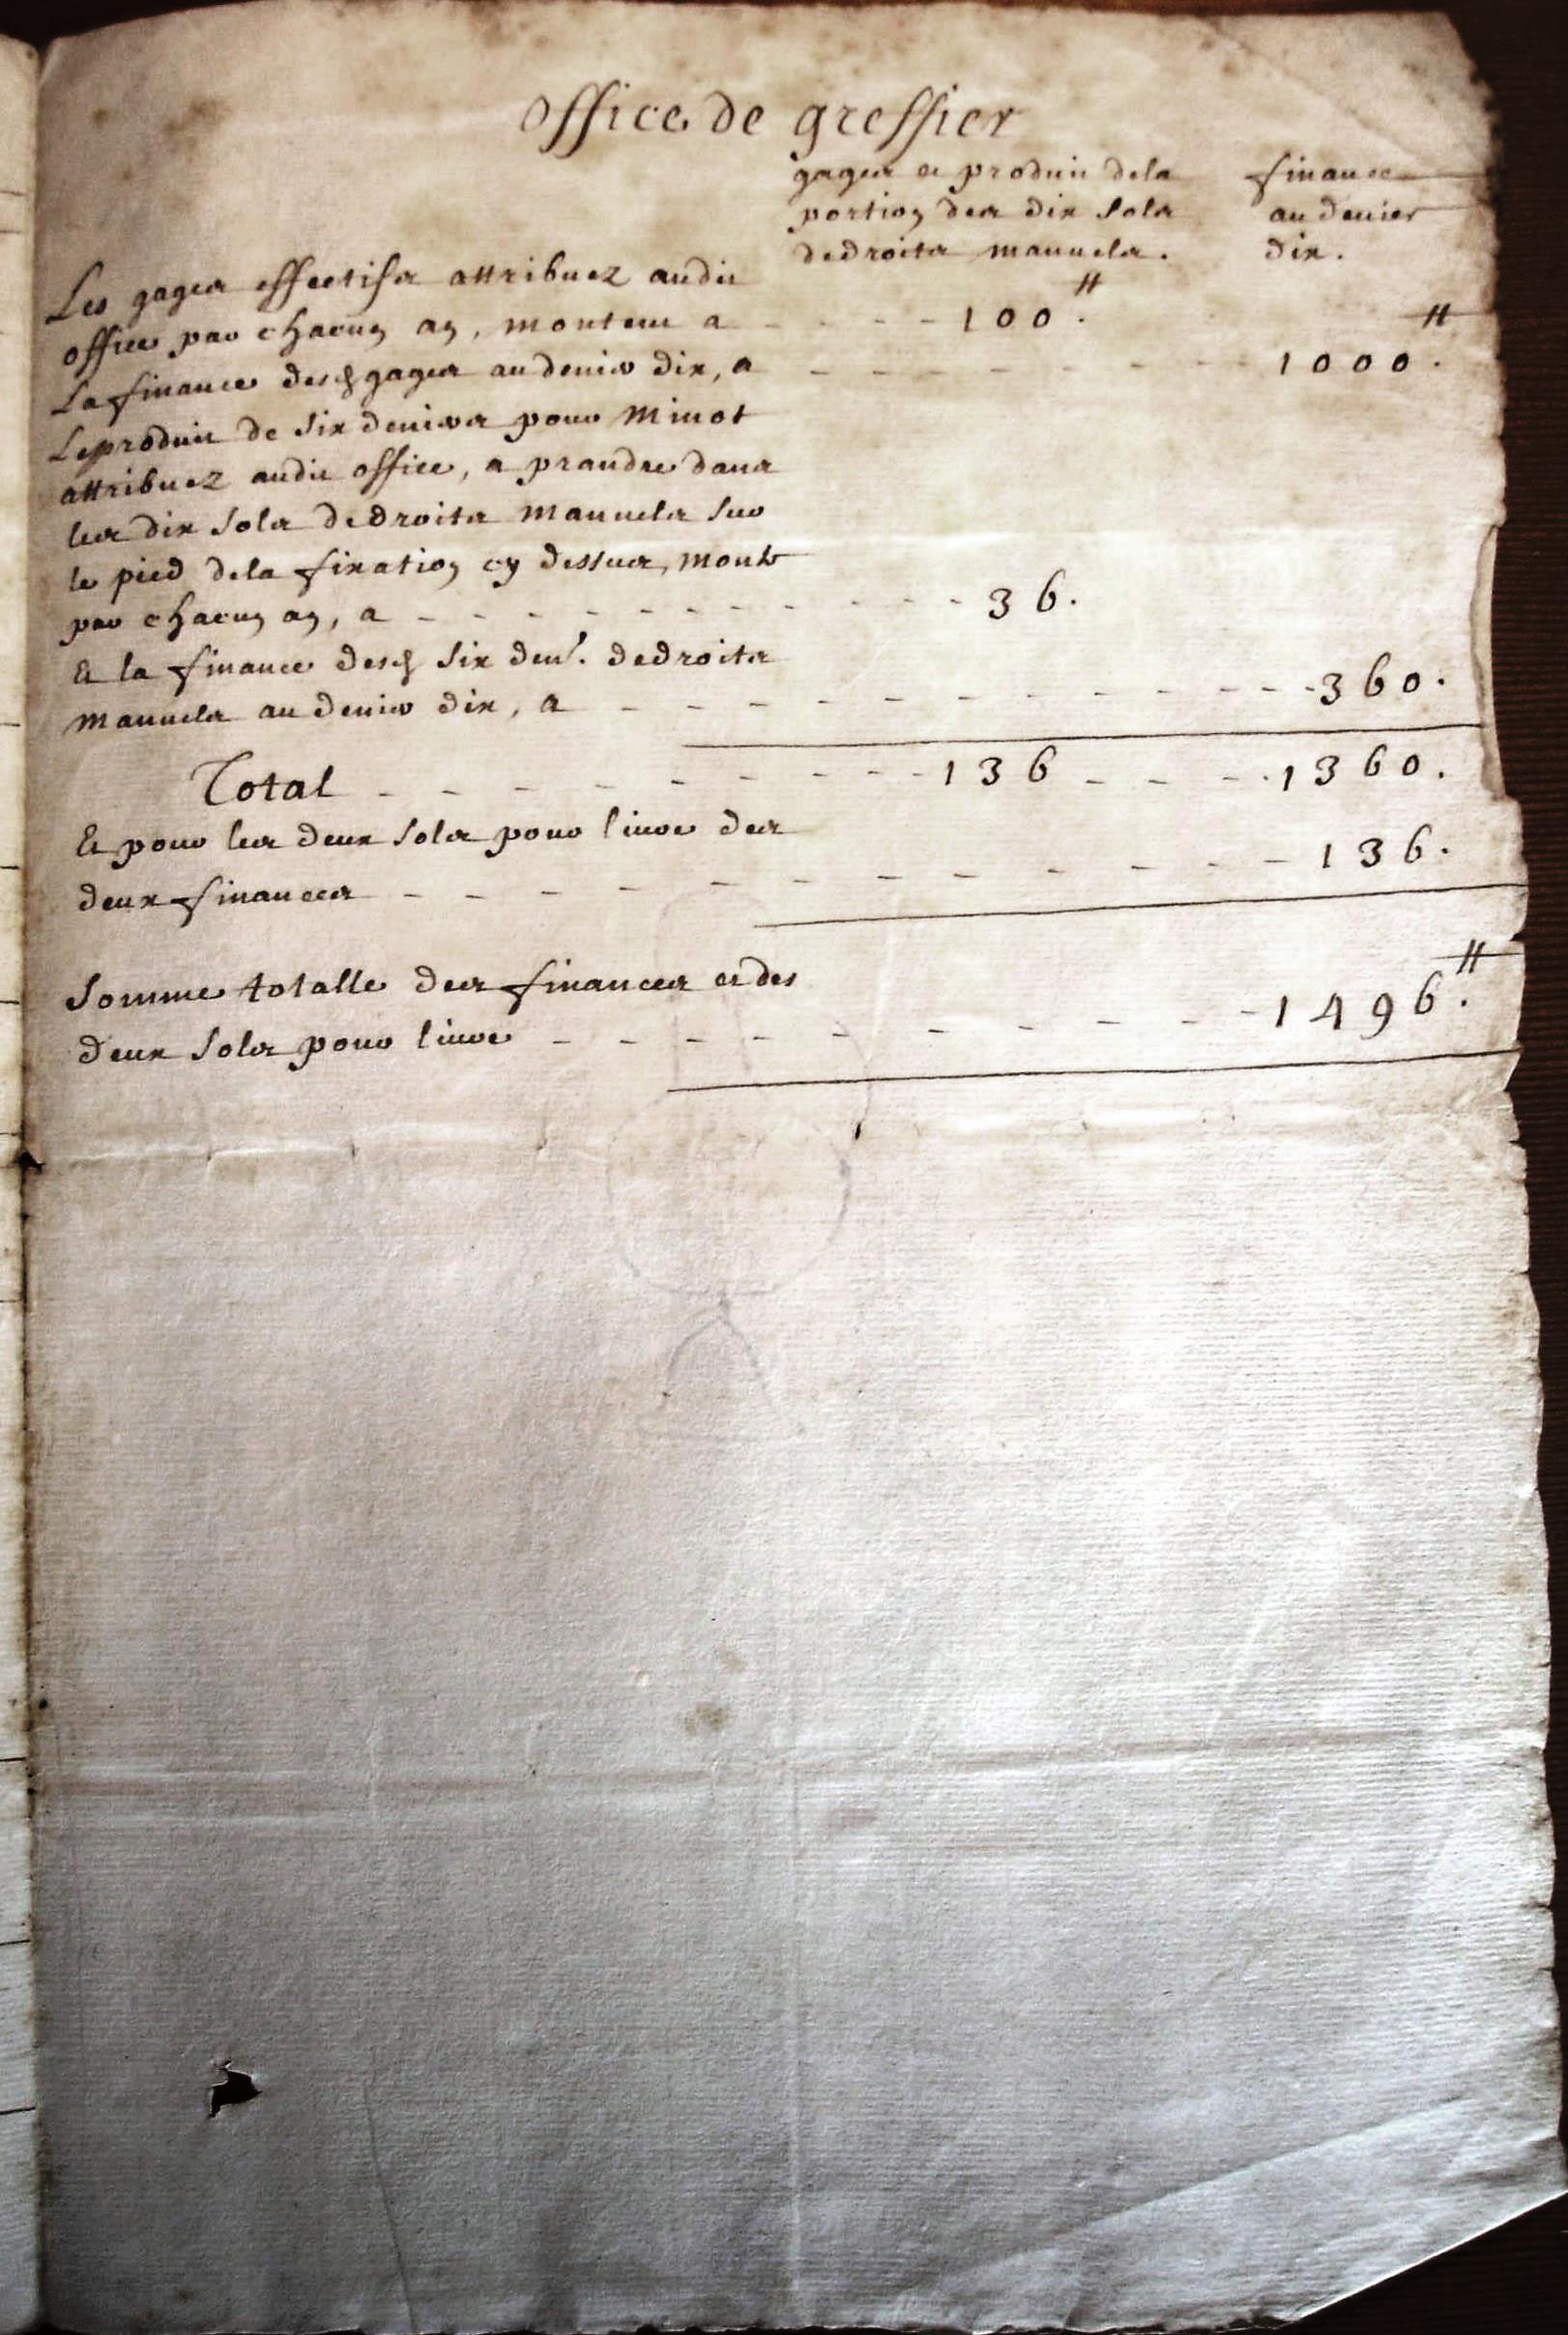 Office de greffier
gages et produit de la
portion des dix sols
de droits manuels.
finance
au denier
dix.
Les gages effectifs attribuez audit
office par chacun an, montent a - - - - 100 ₶.
La finance desd gages au denier dix, a - - - - - - - - 1000 ₶.
Le produit de six deniers pour Minot
attribuez audit office, a prandre dans
les dix sols de droits manuels sur
le pied de la fixation cy dessus, monte
par chacun an, a - - - - - - - - - - 36.
Et la finance desd six den.rs de droits
manuels au denier dix, a - - - - - - - - - - 360.
Total - - - - - - - - - 136 - - - - 1360.
Et pour les deux sols pour livre des
deux finances - - - - - - - - - - - - 136.
Somme totalle des finances et des
deux sols pour livre - - - - - - - - - - 1496 ₶.